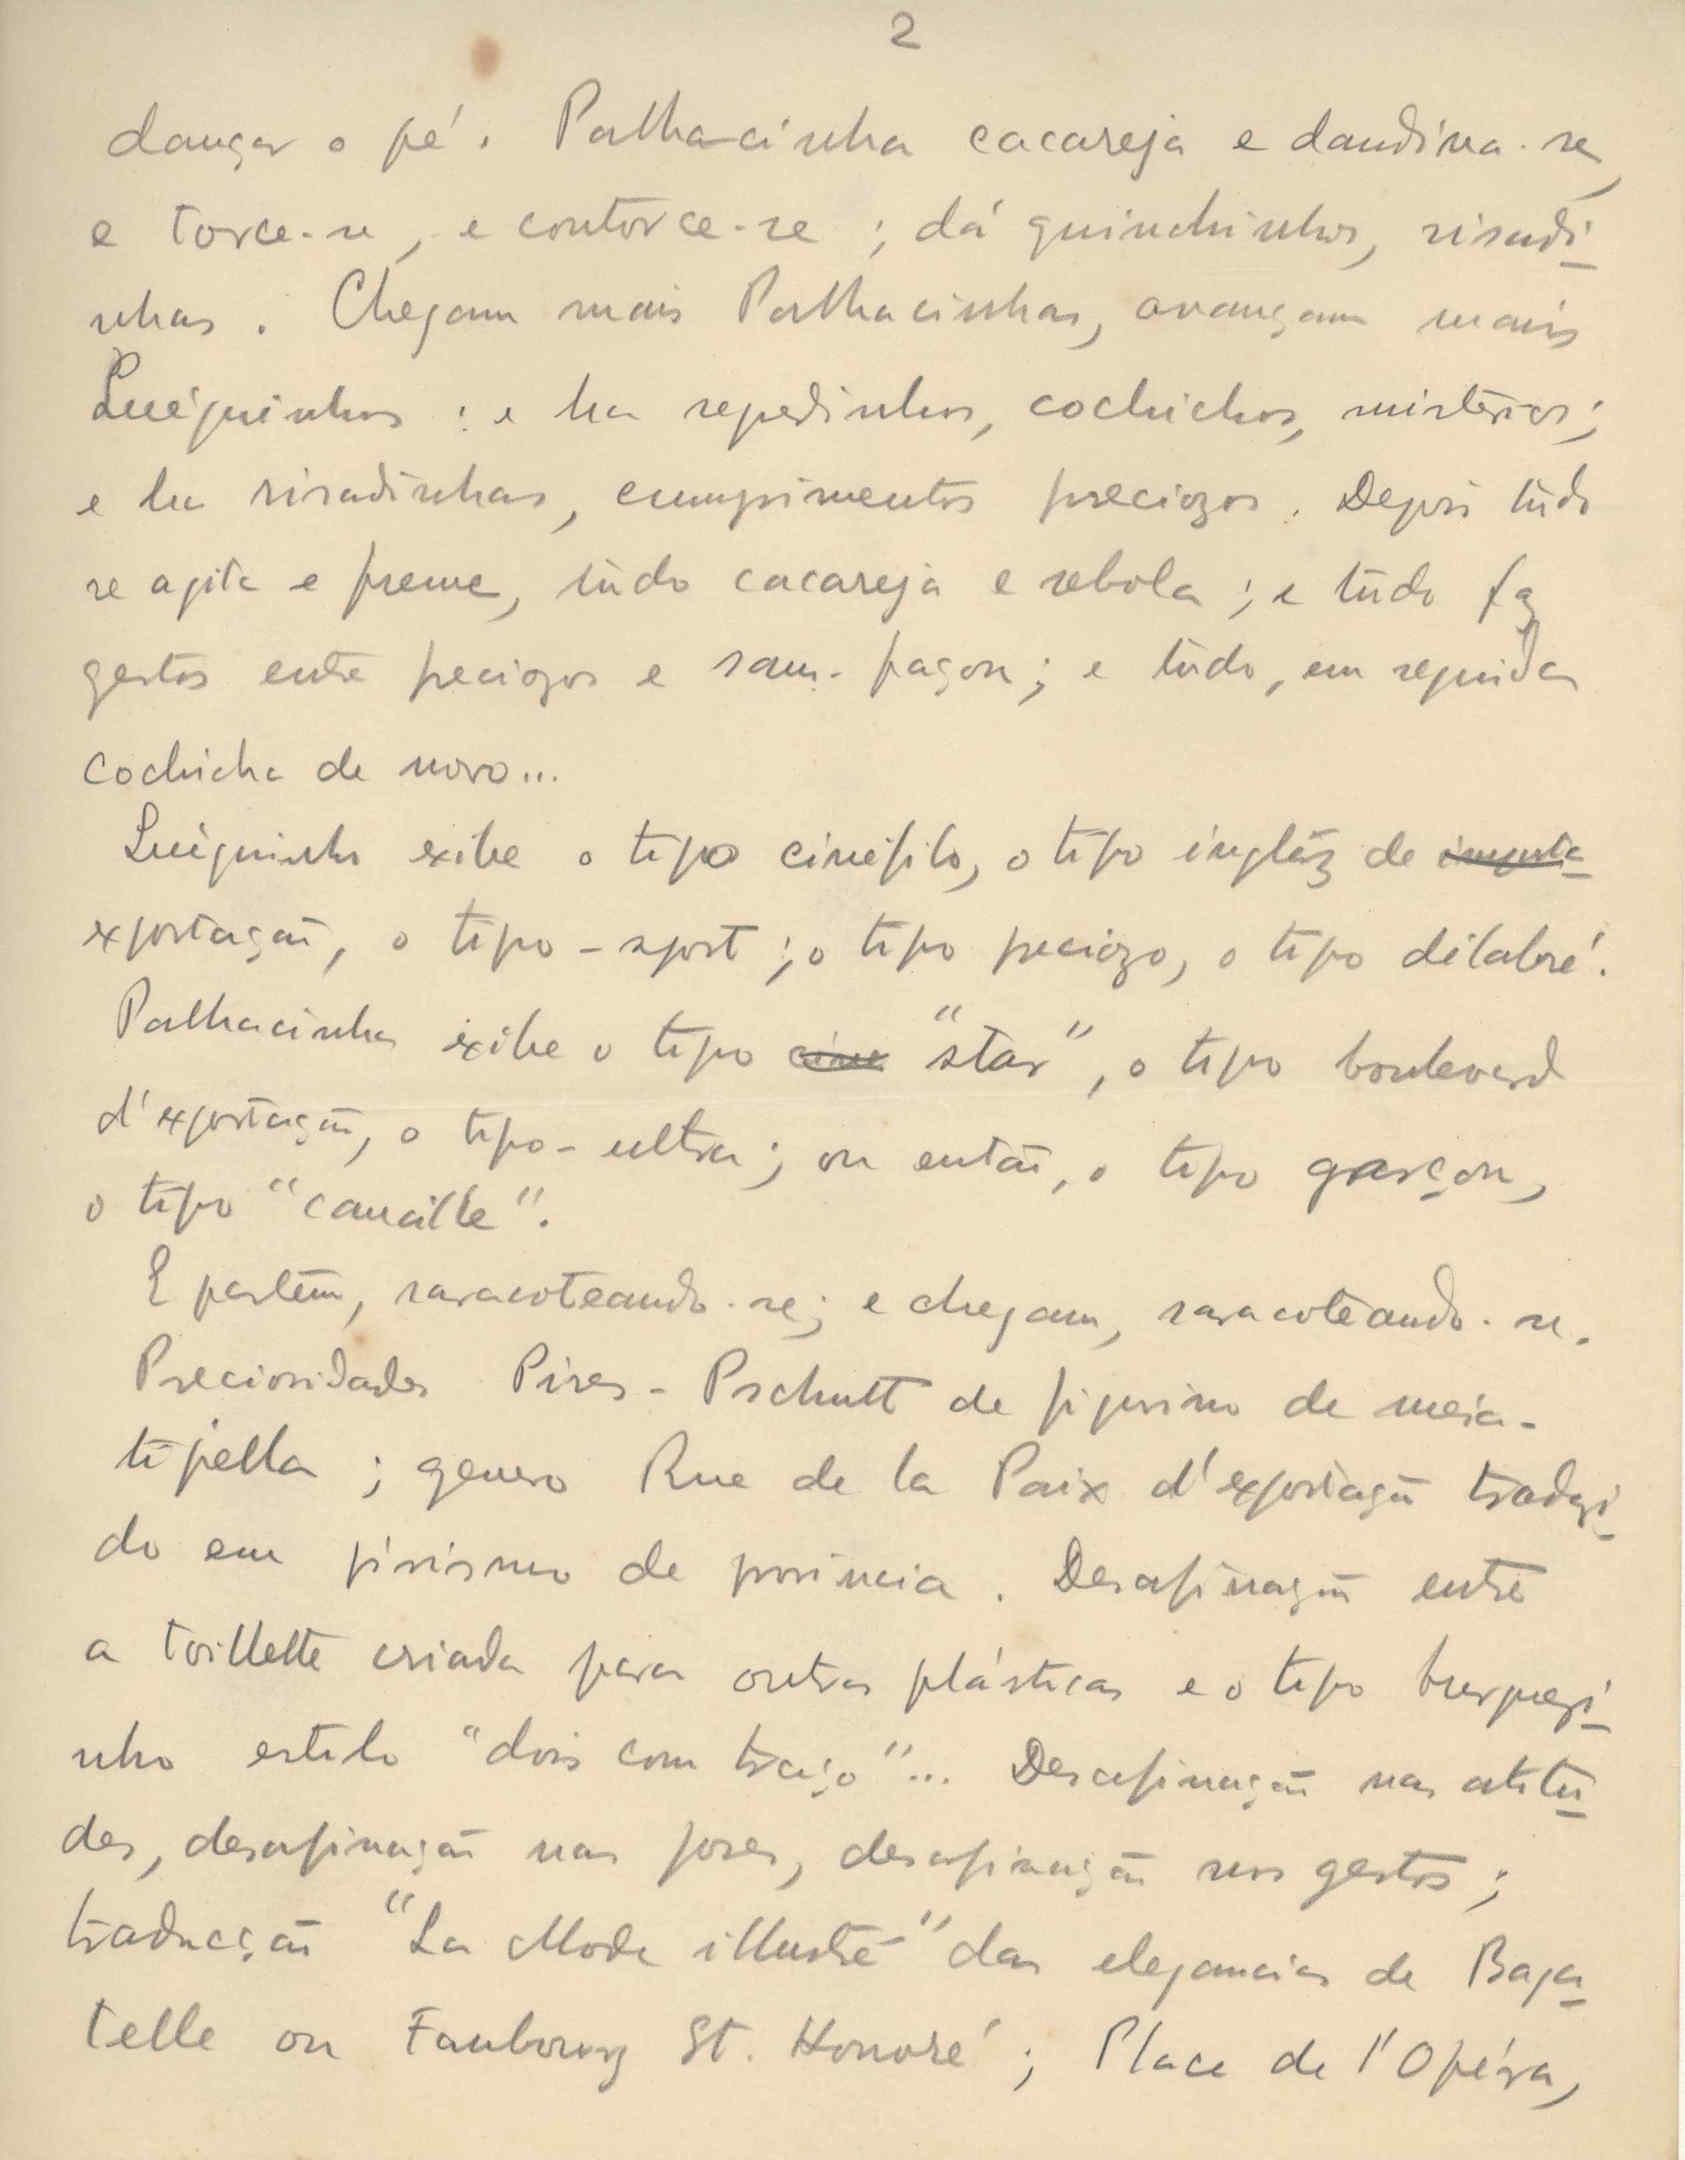 2
dançar o pé. Palhacinha cacareja e dandina-se,
e torce-se, e contorce-se; dá guinchinhos, risadi-
nhas. Chegam mais Palhacinhas, avançam mais
Luiquinhos: e ha segredinhos, cochichos, mistérios;
e ha risadinhas, cumprimentos preciozos. Depois tudo
se agita e freme, tudo cacareja e rebola; e tudo faz
gestos entre preciozos e sans-façon; e tudo, em seguida
cochicha de novo...
Luiquinho exibe o tipo cinéfilo, o tipo inglêz de importa-
exportação, o tipo-sport; o tipo preciozo, o tipo délabré.
Palhacinha exibe o tipo cine "star", o tipo boulevard
d'exportação, o tipo-ultra; ou então, o tipo garçon,
o tipo "canaille".
E partem, saracoteando-se; e chegam, saracoteando-se.
Preciosidades Pires-Pschutt de figurino de meia-
tijella; genero Rue de la Paix d'exportação traduzi-
do em pirismo de provincia. Desafinação entre
a toillette criada para outras plásticas e o tipo burguezi-
nho estilo "dois com traço"... Desafinação nas atitu-
des, desafinação nas poses, desafinação nos gestos;
traducção "La Mode illustré" das elegancias de Baga-
telle ou Faubourg St. Honoré; Place de l'Opéra,